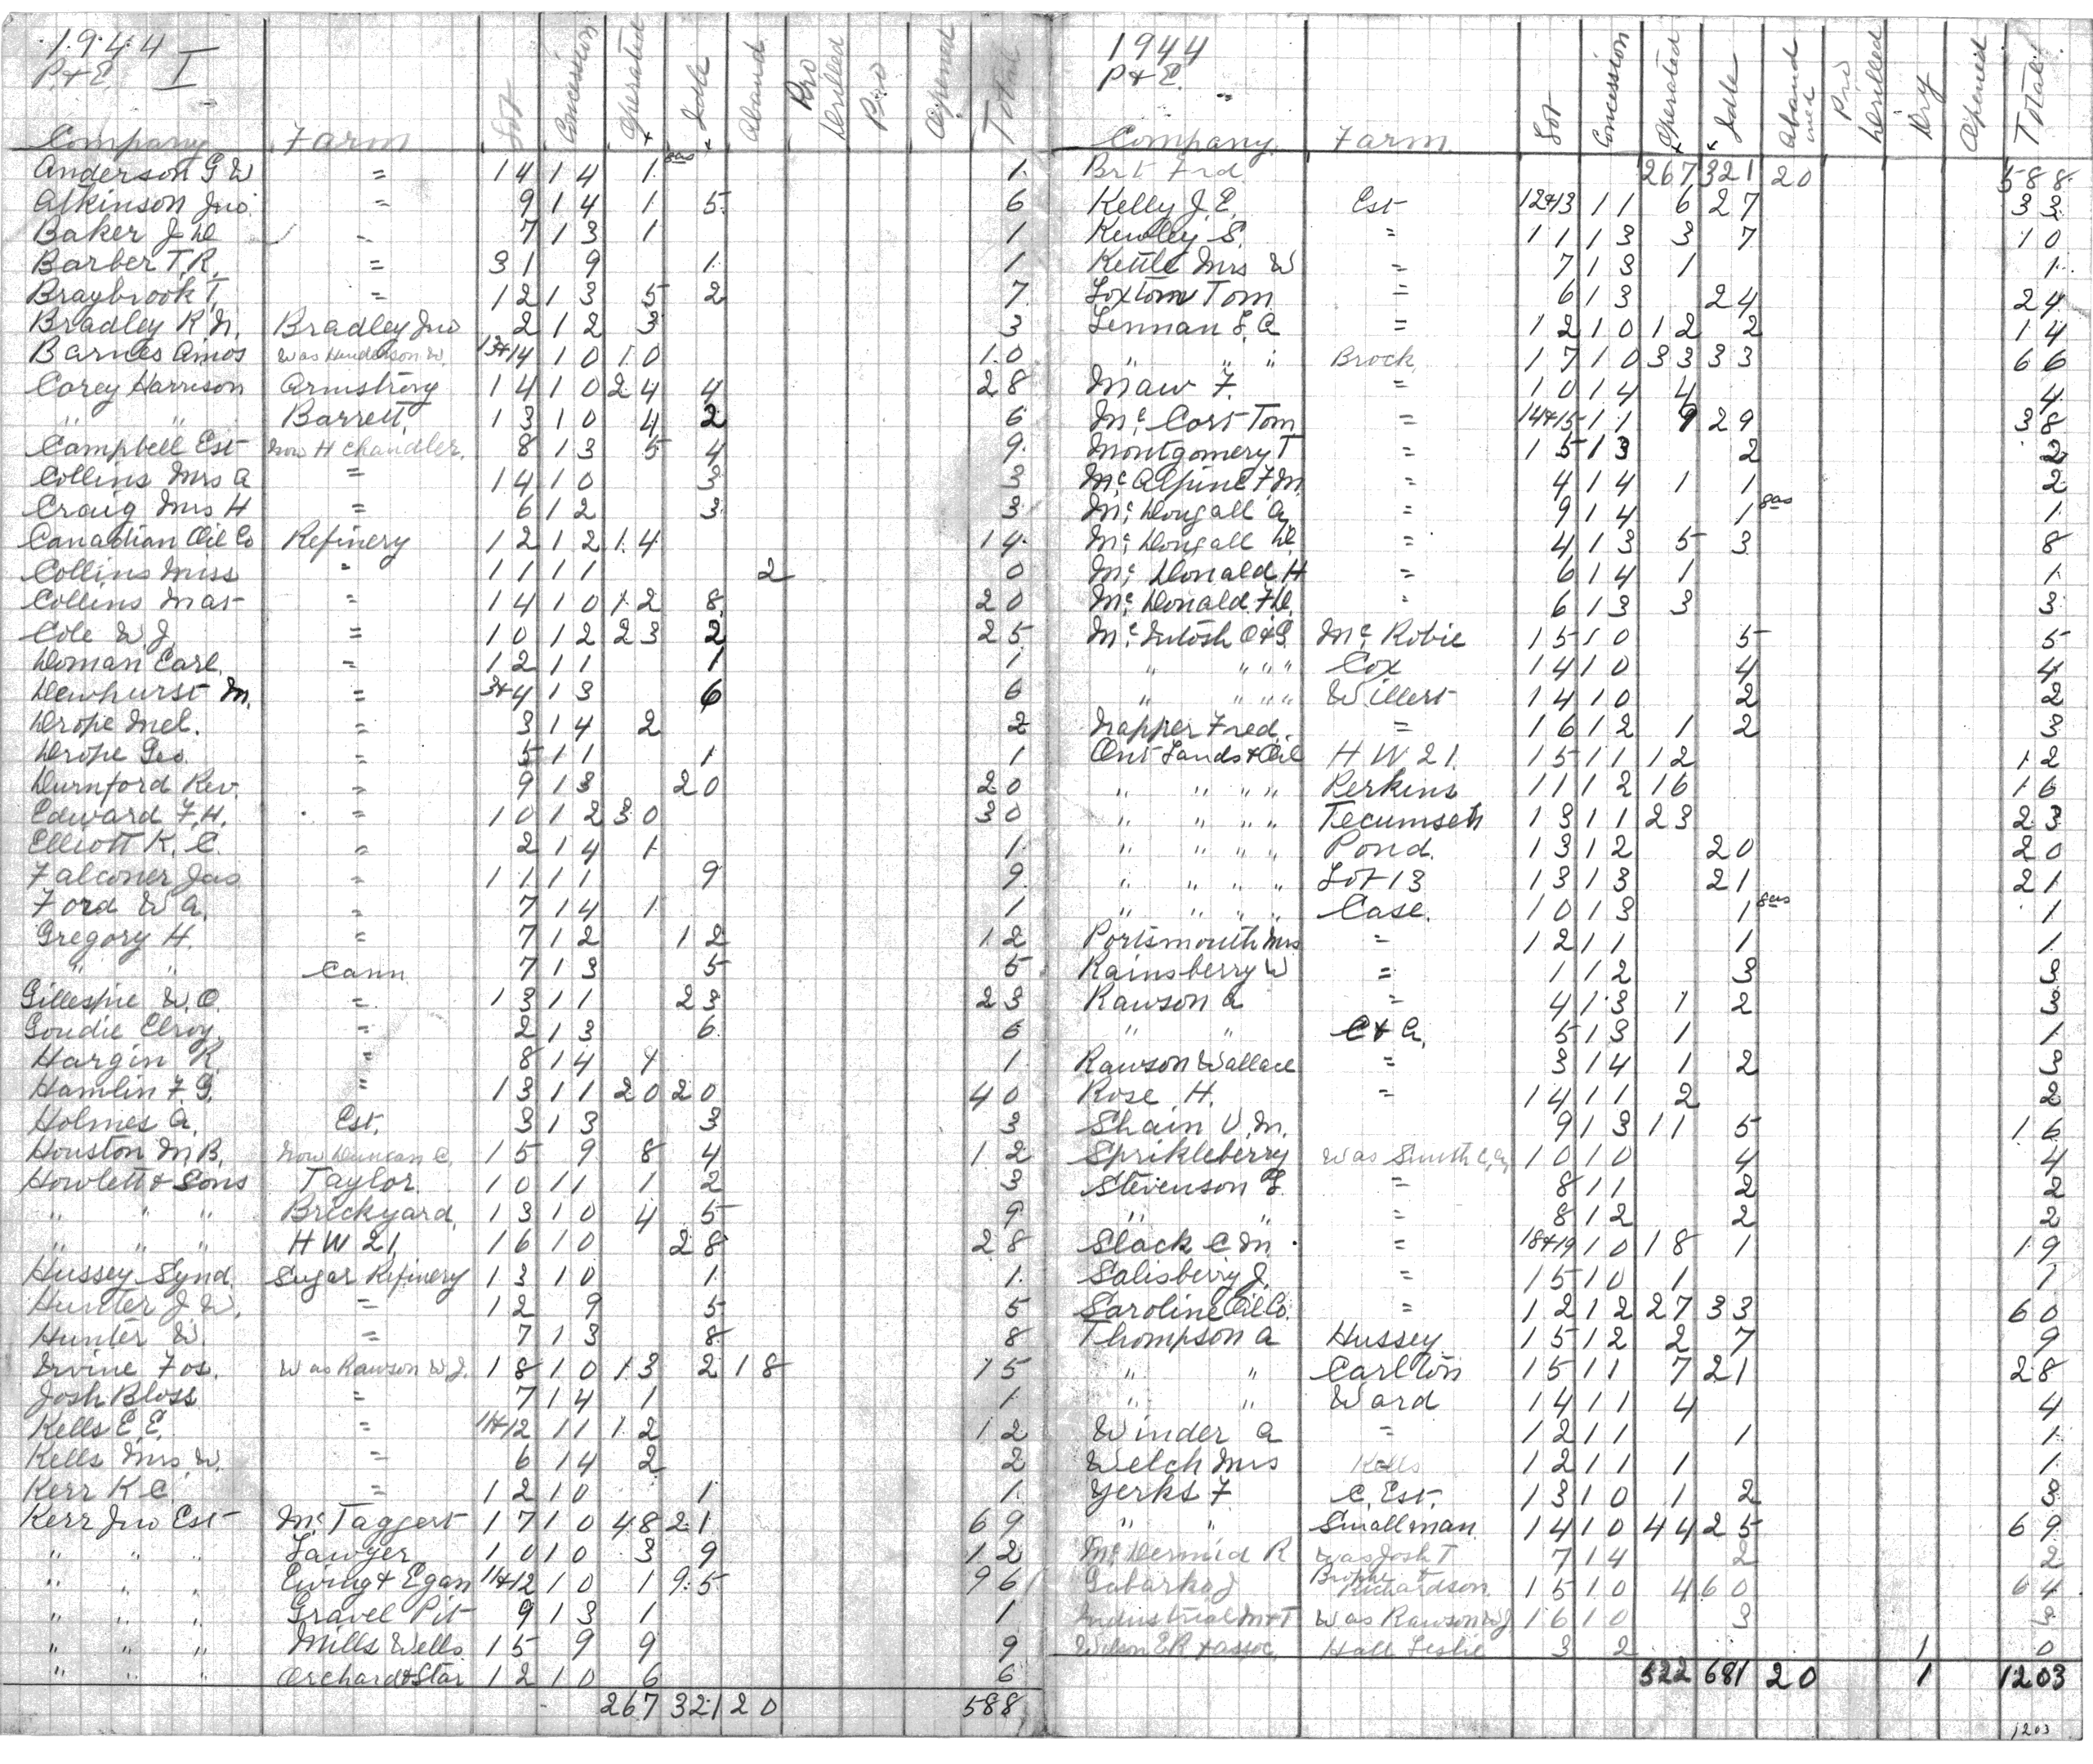 1944 I
P & E.
Company Farm Lot Concession Operated Idle Aband Pro Drilled Pro Opened Total
Anderson G W = 14 14 1 gas 1
Atkinson Jno = 9 14 1 5 6
Baker J D = 7 13 1 1
Barber T.R. = 31 9 1 1
Braybrook T. = 12 13 5 2 7
Bradley R N. Bradley Jno 2 12 3 3
Barnes Amos Was Henderson W. 13+14 10 10 10
Corey Harrison Armstrong 14 10 24 4 28
" " Barrett 13 10 4 2 6
Campbell Est Now H Chandler. 8 13 5 4 9
Collins Mrs A = 14 10 3 3
Craig Mrs H = 6 12 3 3
Canadian Oil Co Refinery 12 12 14 14
Collins Miss " 11 11 2 0
Collins Mat " 14 10 12 8 20
Cole W J. = 10 12 23 2 25
Doman Earl. = 12 11 1 1
Dewhurst M. = 3+4 13 6 6
Drope Mel. = 3 14 2 2
Drope Geo. = 5 11 1 1
Durnford Rev. = 9 13 20 20
Edward F.H. = 10 12 30 30
Elliott K. C. = 2 14 1 1
Falconer Jas = 11 11 9 9
Ford W A. = 7 14 1 1
Gregory H. = 7 12 12 12
" " Cann 7 13 5 5
Gillespie W.O. = 13 11 23 23
Goudie Elroy = 2 13 6 6
Hargin R = 8 14 1 1
Hamlin F.G. = 13 11 20 20 40
Holmes A. Est. 3 13 3 3
Houston M.B. Now Duncan C. 15 9 8 4 12
Howlett & Sons Taylor 10 11 1 2 3
" " " Brickyard 13 10 4 5 9
" " " H W 21 16 10 28 28
Hussey Synd. Sugar Refinery 13 10 1 1
Hunter J W. = 12 9 5 5
Hunter W. = 7 13 8 8
Irvine Fos. Was Rawson W J. 18 10 13 2 18 15
Josh Bloss = 7 14 1 1
Kells E.E. = 11+12 11 12 12
Kells Mrs W. = 6 14 2 2
Kerr K C = 12 10 1 1
Kerr Jno Est Mc Taggert 17 10 48 21 69
" " " Sawyer 10 10 3 9 12
" " " Ewing & Egan 11+12 10 1 95 96
" " " Gravel Pit 9 13 1 1
" " " Mills Wells 15 9 9 9
" " " Orchard & Star 12 10 6 6
267 321 20 588
1944
P & E.
Company. Farm Lot Concession Operated Idle Aband ned Pro Drilled Dry Opened Total
Brt Frd 267 321 20 588
Kelly J.E. Est 12+13 11 6 27 33
Kewley S. = 11 13 3 7 10
Kettle Mrs W = 7 13 1 1
Loxton Tom = 6 13 24 24
Lennan L A = 12 10 12 2 14
" " " Brock 17 10 33 33 66
Maw F. = 10 14 4 4
Mc Cort Tom = 14+15 11 9 29 38
Montgomery T = 15 13 2 2
Mc Alpine F.M. = 4 14 1 1 2
Mc Dougall A = 9 14 1 gas 1
Mc Dougall D. = 4 13 5 3 8
Mc Donald H = 6 14 1 1
Mc Donald F.D. = 6 13 3 3
Mc Intosh O & G Mc Robie 15 10 5 5
" " " " Cox 14 10 4 4
" " " " Willert 14 10 2 2
Napper Fred. = 16 12 1 2 3
Ont Lands & Oil H W 21. 15 11 12 12
" " " " Perkins 11 12 16 16
" " " " Tecumseh 13 11 23 23
" " " " Pond. 13 12 20 20
" " " " Lot 13 13 13 21 21
" " " " Case. 10 13 1 gas 1
Portsmouth Mrs = 12 11 1 1
Rainsberry W = 1 12 3 3
Rawson A = 4 13 1 2 3
" " C & A. 5 13 1 1
Rawson Wallace = 3 14 1 2 3
Rose H. = 14 11 2 2
Shain V.M. 9 13 11 5 16
Sprikleberry Was Smith 10 10 4 4
Stevenson G. = 8 11 2 2
" " = 8 12 2 2
Slack C M = 18+19 10 18 1 19
Salisberry J. = 15 10 1 1
Saroline Oil Co. = 12 12 27 33 60
Thompson A Hussey 15 12 2 7 9
" " Carlton 15 11 7 21 28
" " Ward 14 11 4 4
Winder A = 12 11 1 1
Welch Mrs Kells 12 11 1 1
Yerks F C. Est. 13 10 1 2 3
" " Smallman 14 10 44 25 69
Mc Dermid R Was Josh T 7 14 2 2
J Richardson 15 10 4 60 64
Industrial M & T Was Rawson W J 16 10 3 3
Wilson E R & assoc. Hall Leslie 3 2 1 0
522 681 20 1 1203
1203